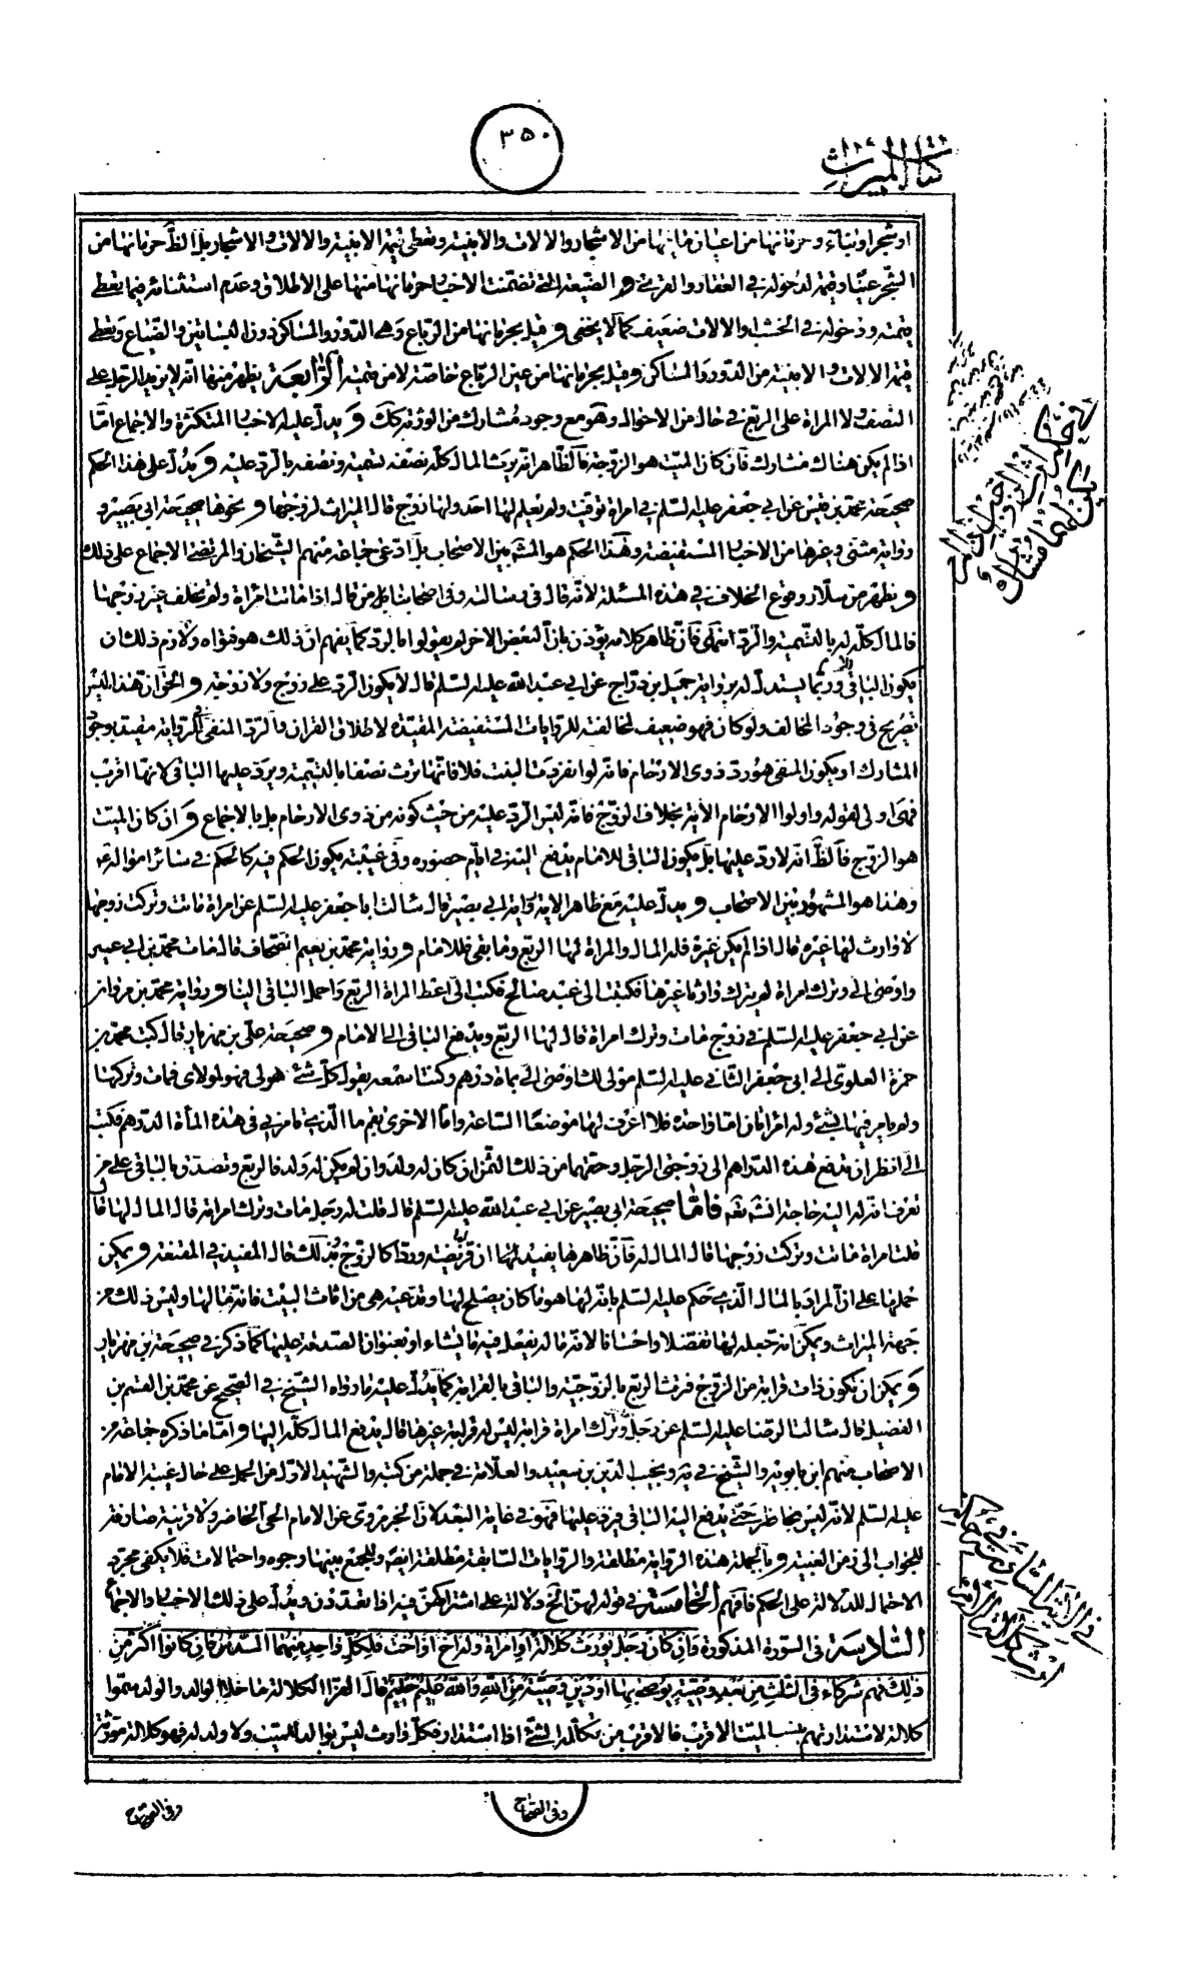 ٣٥٠
كتاب الميراث
او شجر او بناء وحرمانها من اعيان ما فيها من الاشجار والالات والابنية وتعطى قيمة الابنية والالات والاشجار بل الظ حرمانها من
الشجر عينا وقيمة لدخوله في العقار والقرية والضيعة التي تضمنت الاخبار حرمانها منها على الاطلاق وعدم استثنائه فيما يعطى
قيمته ودخوله في الخشب والالات ضعيف كما لا يخفى وقيل بحرمانها من الرباع وهي الدور والمساكن دون البساتين والضياع وتعطى
قيمة الالات والابنية من الدور والمساكن وقيل بحرمانها من عين الرباع خاصة لا من قيمته الرابعة يظهر منها انه لا يزيد الرجل على
النصف ولا المراة على الربع في حال من الاحوال وهو مع وجود مشارك من الورثة كك ويدل عليه الاخبار المتكثرة والاجماع اما
اذا لم يكن هناك مشارك فان كان الميت هو الزوجة فالظاهر انه يرث المال كله نصفه تسمية ونصفه بالرد عليه ويدل على هذا الحكم
صحيحة محمد بن قيس عن ابي جعفر عليه السلم في امراة توفيت ولم يعلم لها احد ولها زوج قال الميراث لزوجها ونحوها صحيحة ابي بصير و
رواية مثنى وغيرها من الاخبار المستفيضة وهذا الحكم هو المشهور بين الاصحاب بل ادعى جماعة منهم الشيخان والمرتضى الاجماع على ذلك
ويظهر من سلار وقوع الخلاف في هذه المسئلة لانه قال في رسالته وفي اصحابنا من قال اذا ماتت امراة ولم تخلف غير زوجها
فالمال كله له بالتسمية والرد انتهى فان ظاهر كلامه يؤذن بان البعض الاخر لم يقولوا بالرد كما يفهم ان ذلك هو فتواه ولازم ذلك ان
يكون الباقي للامام وربما يستدل له برواية جميل بن دراج عن ابي عبد الله عليه السلم قال لا يكون الرد على زوج ولا زوجة والحق ان هذا ليس
تصريح في وجود المخالف ولو كان فهو ضعيف لمخالفته للروايات المستفيضة المقيدة لاطلاق القران والرد المنفى في الرواية مقيد بوجود
المشارك او يكون المنفى هو رد ذوى الارحام فانه لو انفردت البنت فلا فانها ترث نصفا بالتسمية ويرد عليها الباقي لانها اقرب
فهى اولى لقوله واولوا الارحام الاية بخلاف الزوج فانه ليس الرد عليه من حيث كونه من ذوى الارحام بل بالاجماع وان كان الميت
هو الزوج فالظ انه لا رد عليها بل يكون الباقي للامام يدفع اليه في ايام حضوره وفي غيبته يكون الحكم فيه كالحكم في سائر امواله ع
وهذا هو المشهور بين الاصحاب ويدل عليه مع ظاهر الاية رواية ابي بصير قال سالت ابا جعفر عليه السلم عن امراة ماتت وتركت زوجها
لا وارث لها غيره قال اذا لم يكن غيره فله المال والمراة لها الربع وما بقى فللامام ورواية محمد بن نعيم الصحاف قال مات محمد بن ابي عمير
واوصى الي وترك امراة لم يترك وارثا غيرها فكتبت الى عبد صالح فكتب الي اعط المراة الربع واحمل الباقي الينا ورواية محمد بن مروان
عن ابي جعفر عليه السلم في زوج مات وترك امراة قال لها الربع ويدفع الباقي الى الامام وصحيحة علي بن مهزيار قال كتب محمد بن
حمزة العلوى الى ابي جعفر الثاني عليه السلم مولى لك اوصى الي بمائة درهم وكنت اسمعه يقول كل شئ هو لى فهو لمولاى فمات وتركها
ولم يامر فيها بشئ وله امراتان اما واحدة فلا اعرف لها موضعا الساعة واما الاخرى بقم ما الذي تامرني في هذه المأة الدرهم فكتب
الي انظر ان تدفع هذه الدراهم الى زوجتي الرجل وحقهما من ذلك الثمن ان كان له ولد وان لم يكن له ولد فالربع وتصدق بالباقي على من
تعرف ان له اليه حاجة انشه تقه فاما صحيحة ابي بصير عن ابي عبد الله عليه السلم قال قلت له رجل مات وترك امراة قال المال لها قال
قلت امراة ماتت وتركت زوجها قال المال له فان ظاهرها يفيد ان لها فريضة وردا كالزوج وبذلك قال المفيد في المقنعة ويمكن
حملها على ان المراد بالمال الذي حكم عليه السلم بانه لها هو ما كان يصلح لها وقد عينه هى من اثاث البيت فانه تمالها وليس ذلك من
جهة الميراث ويمكن انه جعله لها تفضلا واحسانا لانه ماله يفعل فيه ما يشاء او بعنوان الصدقة عليها كما ذكر في صحيحة بن مهزيار
ويمكن ان تكون ذات قرابة من الزوج فترث الربع بالزوجية والباقي بالقرابة كما يدل عليه ما رواه الشيخ في الصحيح عن محمد بن القسم بن
الفضيل قال سالت الرضا عليه السلم عن رجل وترك امراة قرابة ليس له قرابة غيرها قال يدفع المال كله اليها واما ما ذكره جماعة من
الاصحاب منهم ابن بابويه والشيخ في يه ونجيب الدين بن سعيد والعلامة في جملة من كتبه والشهيد الاول من الحمل على حال غيبة الامام
عليه السلم لانه ليس بحاضر حتى يدفع اليه الباقي فيرد عليها فهو في غاية البعد لان الخبر مروى عن الامام الحي الحاضر ولا قرينة صارفة
للجواب الى زمن الغيبة وبالجملة هذه الرواية مطلقة والروايات السابقة مطلقة ايضه وللجمع بينها وجوه واحتمالات فلا يكفي مجرد
الاحتمال للدلالة على الحكم فافهم الخامسة في قوله لهن الخ دلالة على اشتراكهن فيه اذا تعددن ويدل على ذلك الاخبار والاجماع
السادسة في السورة المذكورة وان كان رجل يورث كلالة او امراة وله اخ او اخت فلكل واحد منهما السدس فان كانوا اكثر من
ذلك فهم شركاء في الثلث من بعد وصية يوصى بها او دين وصية من الله والله عليم حليم قال الفراء الكلالة ما خلا الوالد والولد سموا
كلالة لاستدارتهم بنسب الميت الاقرب فالاقرب من تكلله الشئ اذا استدار فكل وارث ليس بوالد للميت ولا ولد له فهو كلالة مورثة
وفي الصحاح